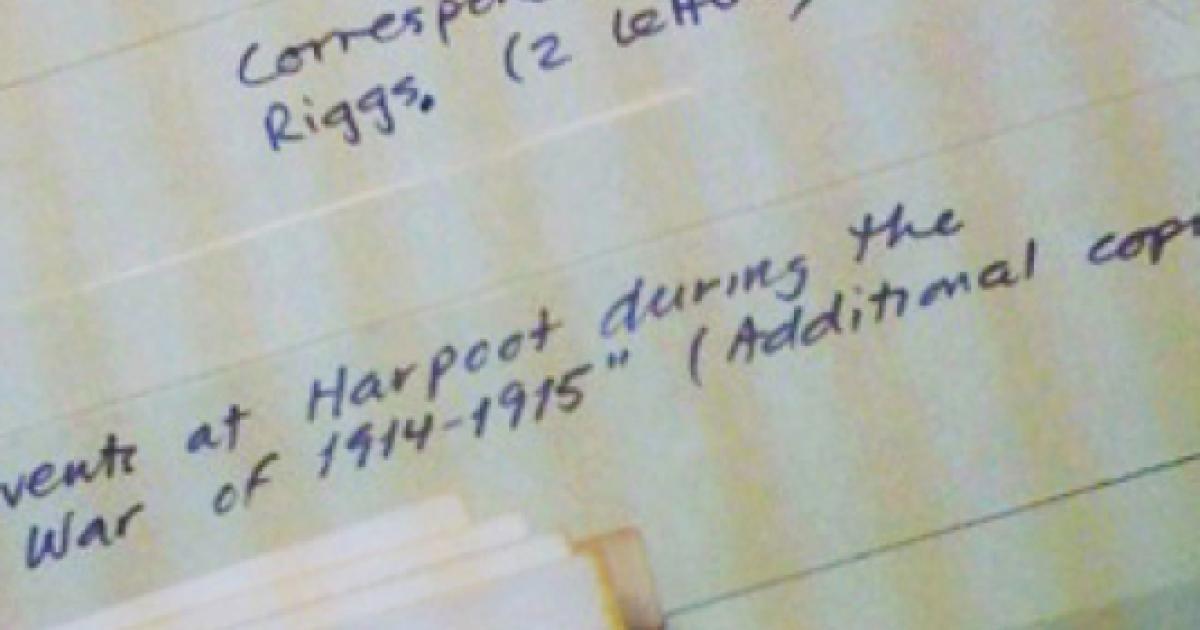 Correspon
Riggs. (2 lette
vents at Harpoot during the
War of 1914-1915" (Additional cop